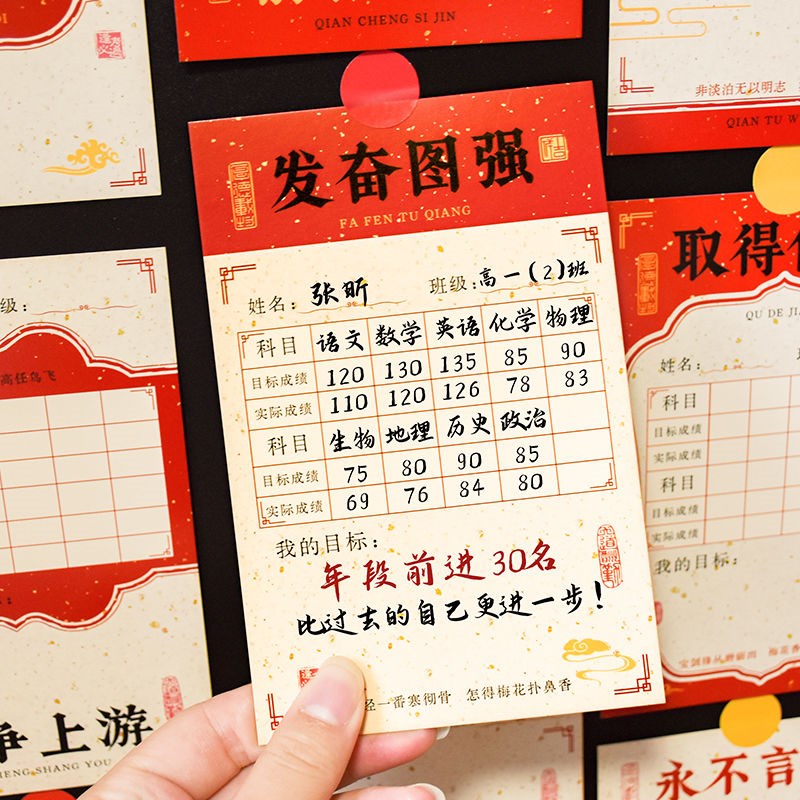 QIAN CHENG SI JIN
非淡泊无以明志
QIAN TU W
发奋图强
FA FEN TU QIANG
姓名：张昕 班级：高一(2)班
科目 语文 数学 英语 化学 物理
目标成绩 120 130 135 85 90
实际成绩 110 120 126 78 83
科目 生物 地理 历史 政治
目标成绩 75 80 90 85
实际成绩 69 76 84 80
我的目标：
年段前进30名
比过去的自己更进一步！
经一番寒彻骨 怎得梅花扑鼻香
级：
高任鸟飞
争上游
HENG SHANG YOU
取得
QU DE JI
姓名：
科目
目标成绩
实际成绩
科目
目标成绩
实际成绩
我的目标：
宝剑锋从磨砺出 梅花香
永不言